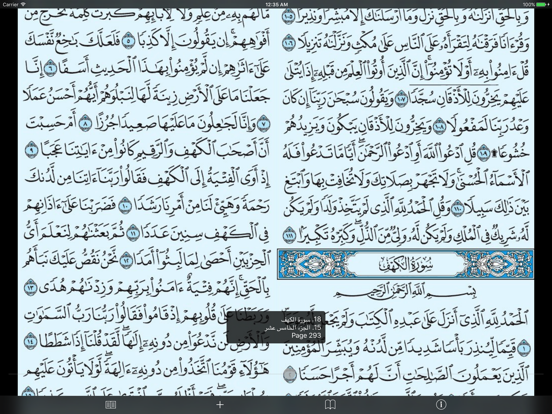 Carrier
12:35 AM
100%
وَبِالْحَقِّ أَنزَلْنَٰهُ وَبِالْحَقِّ نَزَلَ وَمَآ أَرْسَلْنَٰكَ إِلَّا مُبَشِّرًا وَنَذِيرًا ١٠٥
وَقُرْءَانًا فَرَقْنَٰهُ لِتَقْرَأَهُۥ عَلَى النَّاسِ عَلَىٰ مُكْثٍ وَنَزَّلْنَٰهُ تَنزِيلًا ١٠٦
قُلْ ءَامِنُوا۟ بِهِۦٓ أَوْ لَا تُؤْمِنُوٓا۟ إِنَّ الَّذِينَ أُوتُوا۟ الْعِلْمَ مِن قَبْلِهِۦٓ إِذَا يُتْلَىٰ
عَلَيْهِمْ يَخِرُّونَ لِلْأَذْقَانِ سُجَّدًا ١٠٧ وَيَقُولُونَ سُبْحَٰنَ رَبِّنَآ إِن كَانَ
وَعْدُ رَبِّنَا لَمَفْعُولًا ١٠٨ وَيَخِرُّونَ لِلْأَذْقَانِ يَبْكُونَ وَيَزِيدُهُمْ
خُشُوعًا ۩ ١٠٩ قُلِ ادْعُوا۟ اللَّهَ أَوِ ادْعُوا۟ الرَّحْمَٰنَ أَيًّا مَّا تَدْعُوا۟ فَلَهُ
الْأَسْمَآءُ الْحُسْنَىٰ وَلَا تَجْهَرْ بِصَلَاتِكَ وَلَا تُخَافِتْ بِهَا وَابْتَغِ
بَيْنَ ذَٰلِكَ سَبِيلًا ١١٠ وَقُلِ الْحَمْدُ لِلَّهِ الَّذِى لَمْ يَتَّخِذْ وَلَدًا وَلَمْ يَكُن
لَّهُۥ شَرِيكٌ فِى الْمُلْكِ وَلَمْ يَكُن لَّهُۥ وَلِىٌّ مِّنَ الذُّلِّ وَكَبِّرْهُ تَكْبِيرًۢا ١١١
سُورَةُ الْكَهْفِ
بِسْمِ اللَّهِ الرَّحْمَٰنِ الرَّحِيمِ
الْحَمْدُ لِلَّهِ الَّذِىٓ أَنزَلَ عَلَىٰ عَبْدِهِ الْكِتَٰبَ وَلَمْ يَجْعَل
١ قَيِّمًا لِّيُنذِرَ بَأْسًا شَدِيدًا مِّن لَّدُنْهُ وَيُبَشِّرَ الْمُؤْمِنِينَ
الَّذِينَ يَعْمَلُونَ الصَّٰلِحَٰتِ أَنَّ لَهُمْ أَجْرًا حَسَنًا
مَّا لَهُم بِهِۦ مِنْ عِلْمٍ وَلَا لِءَابَآئِهِمْ كَبُرَتْ كَلِمَةً تَخْرُجُ مِنْ
أَفْوَٰهِهِمْ إِن يَقُولُونَ إِلَّا كَذِبًا ٥ فَلَعَلَّكَ بَٰخِعٌ نَّفْسَكَ
عَلَىٰٓ ءَاثَٰرِهِمْ إِن لَّمْ يُؤْمِنُوا۟ بِهَٰذَا الْحَدِيثِ أَسَفًا ٦ إِنَّا
جَعَلْنَا مَا عَلَى الْأَرْضِ زِينَةً لَّهَا لِنَبْلُوَهُمْ أَيُّهُمْ أَحْسَنُ عَمَلًا
٧ وَإِنَّا لَجَٰعِلُونَ مَا عَلَيْهَا صَعِيدًا جُرُزًا ٨ أَمْ حَسِبْتَ
أَنَّ أَصْحَٰبَ الْكَهْفِ وَالرَّقِيمِ كَانُوا۟ مِنْ ءَايَٰتِنَا عَجَبًا ٩
إِذْ أَوَى الْفِتْيَةُ إِلَى الْكَهْفِ فَقَالُوا۟ رَبَّنَآ ءَاتِنَا مِن لَّدُنكَ
رَحْمَةً وَهَيِّئْ لَنَا مِنْ أَمْرِنَا رَشَدًا ١٠ فَضَرَبْنَا عَلَىٰٓ ءَاذَانِهِمْ
فِى الْكَهْفِ سِنِينَ عَدَدًا ١١ ثُمَّ بَعَثْنَٰهُمْ لِنَعْلَمَ أَىُّ
الْحِزْبَيْنِ أَحْصَىٰ لِمَا لَبِثُوٓا۟ أَمَدًا ١٢ نَّحْنُ نَقُصُّ عَلَيْكَ نَبَأَهُم
بِالْحَقِّ إِنَّهُمْ فِتْيَةٌ ءَامَنُوا۟ بِرَبِّهِمْ وَزِدْنَٰهُمْ هُدًى ١٣
وَرَبَطْنَا عَلَىٰ قُلُوبِهِمْ إِذْ قَامُوا۟ فَقَالُوا۟ رَبُّنَا رَبُّ السَّمَٰوَٰتِ
وَالْأَرْضِ لَن نَّدْعُوَا۟ مِن دُونِهِۦٓ إِلَٰهًا لَّقَدْ قُلْنَآ إِذًا شَطَطًا ١٤
هَٰٓؤُلَآءِ قَوْمُنَا اتَّخَذُوا۟ مِن دُونِهِۦٓ ءَالِهَةً لَّوْلَا يَأْتُونَ عَلَيْهِم
18. سورة الكهف
15. الجزء الخامس عشر
Page 293